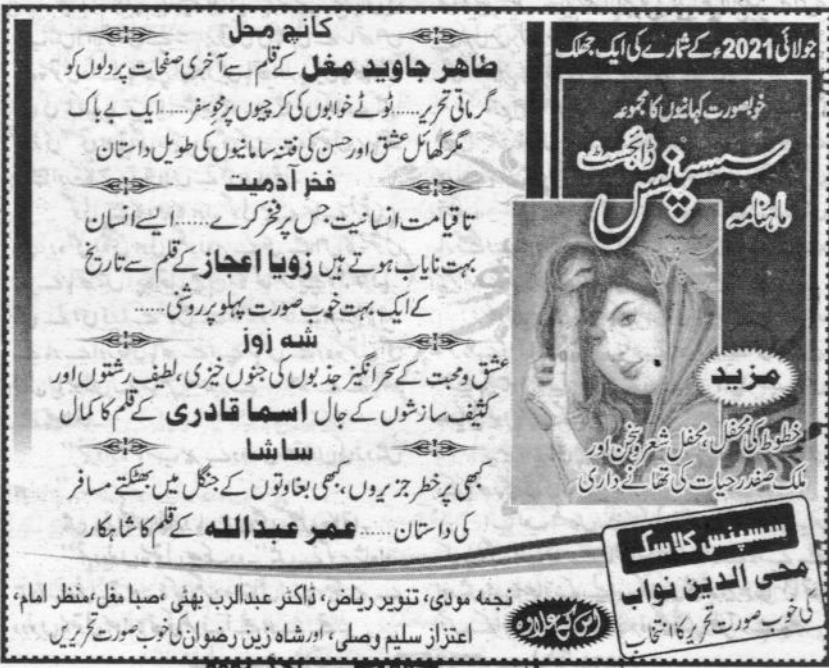 جولائی 2021ء کے شمارے کی ایک جھلک
خوبصورت کہانیوں کا مجموعہ
ماہنامہ
سسپنس
ڈائجسٹ
مزید
خطوط کی محفل، محفل شعر و سخن اور
ملک صفدر حیات کی تھانے داری
سسپنس کلاسک
محی الدین نواب
کی خوب صورت تحریر کا انتخاب
کانچ محل
طاہر جاوید مغل کے قلم سے آخری صفحات پر دلوں کو
گرماتی تحریر.....ٹوٹے خوابوں کی کرچیوں پر محو سفر......ایک بے باک
مگر گھائل عشق اور حسن کی فتنہ سامانیوں کی طویل داستان
فخر آدمیت
تا قیامت انسانیت جس پر فخر کرے.......ایسے انسان
بہت نایاب ہوتے ہیں زویا اعجاز کے قلم سے تاریخ
کے ایک بہت خوب صورت پہلو پر روشنی......
شہ زوز
عشق و محبت کے سحر انگیز جذبوں کی جنوں خیزی، لطیف رشتوں اور
کثیف سازشوں کے جال اسما قادری کے قلم کا کمال
ساشا
کبھی پر خطر جزیروں، کبھی بغاوتوں کے جنگل میں بھٹکتے مسافر
کی داستان...... عمر عبداللہ کے قلم کا شاہکار
اس کے علاوہ
نجمہ مودی، تنویر ریاض، ڈاکٹر عبدالرب بھٹی، صبا مغل، منظر امام،
اعتزاز سلیم وصلی، اور شاہ زین رضوان کی خوب صورت تحریریں